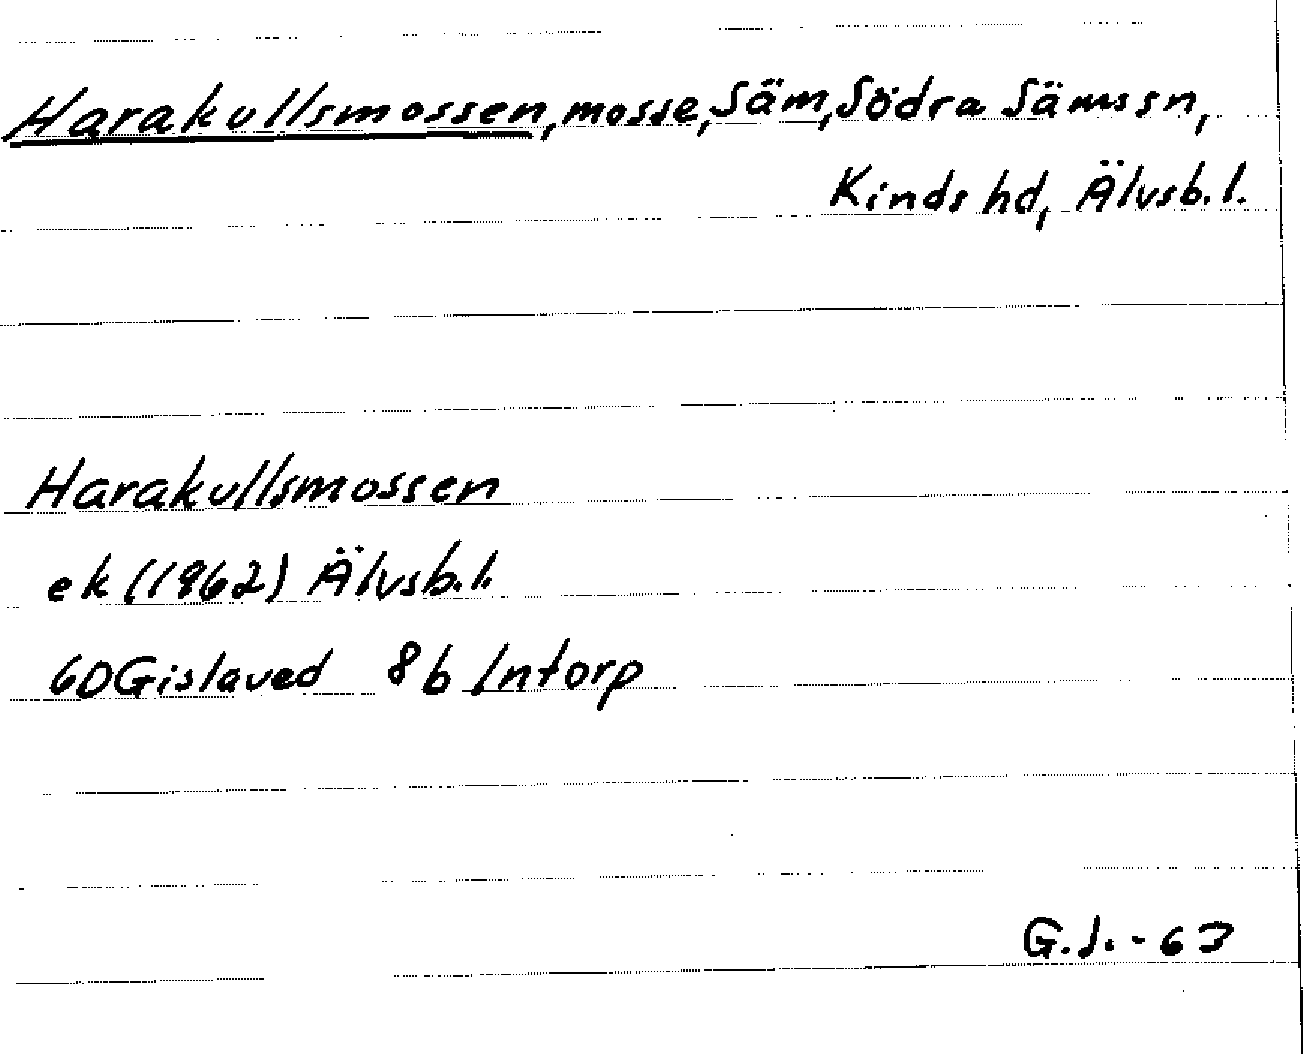 Harakullsmossen, mosse, Säm, Södra Säms sn,
Kinds hd, Älvsb. l.
Harakullsmossen
ek (1962) Älvsb. l.
6D Gislaved 8b Intorp
G.J. - 63